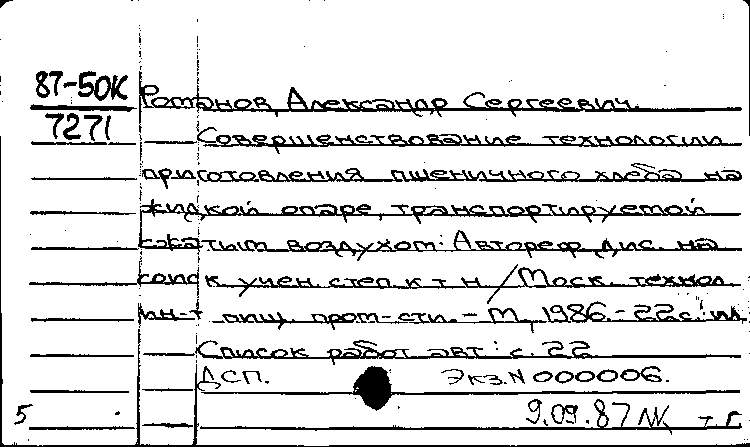 87-50К Романов, Александр Сергеевич.
7271 Совершенствование технологии
приготовления пшеничного хлеба на
жидкой опаре, транспортируемой
сжатым воздухом: Автореф. дис. на
соиск учен. степ. к т н / Моск. технол
ин-т пищ. пром-сти. - М., 1986. - 22 с.: ил.
Список работ авт.: с. 22
ДСП. Экз. N 000006.
5 9.09.87